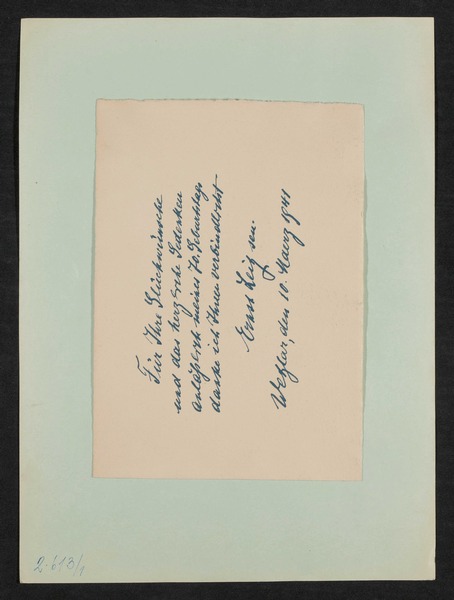 Für Ihre Glückwünsche
und das herzliche Gedenken
anläßlich meines 70. Geburtstags
danke ich Ihnen verbindlichst
Ernst Leitz sen.
Wetzlar, den 10. Maerz 1941
2-613/1